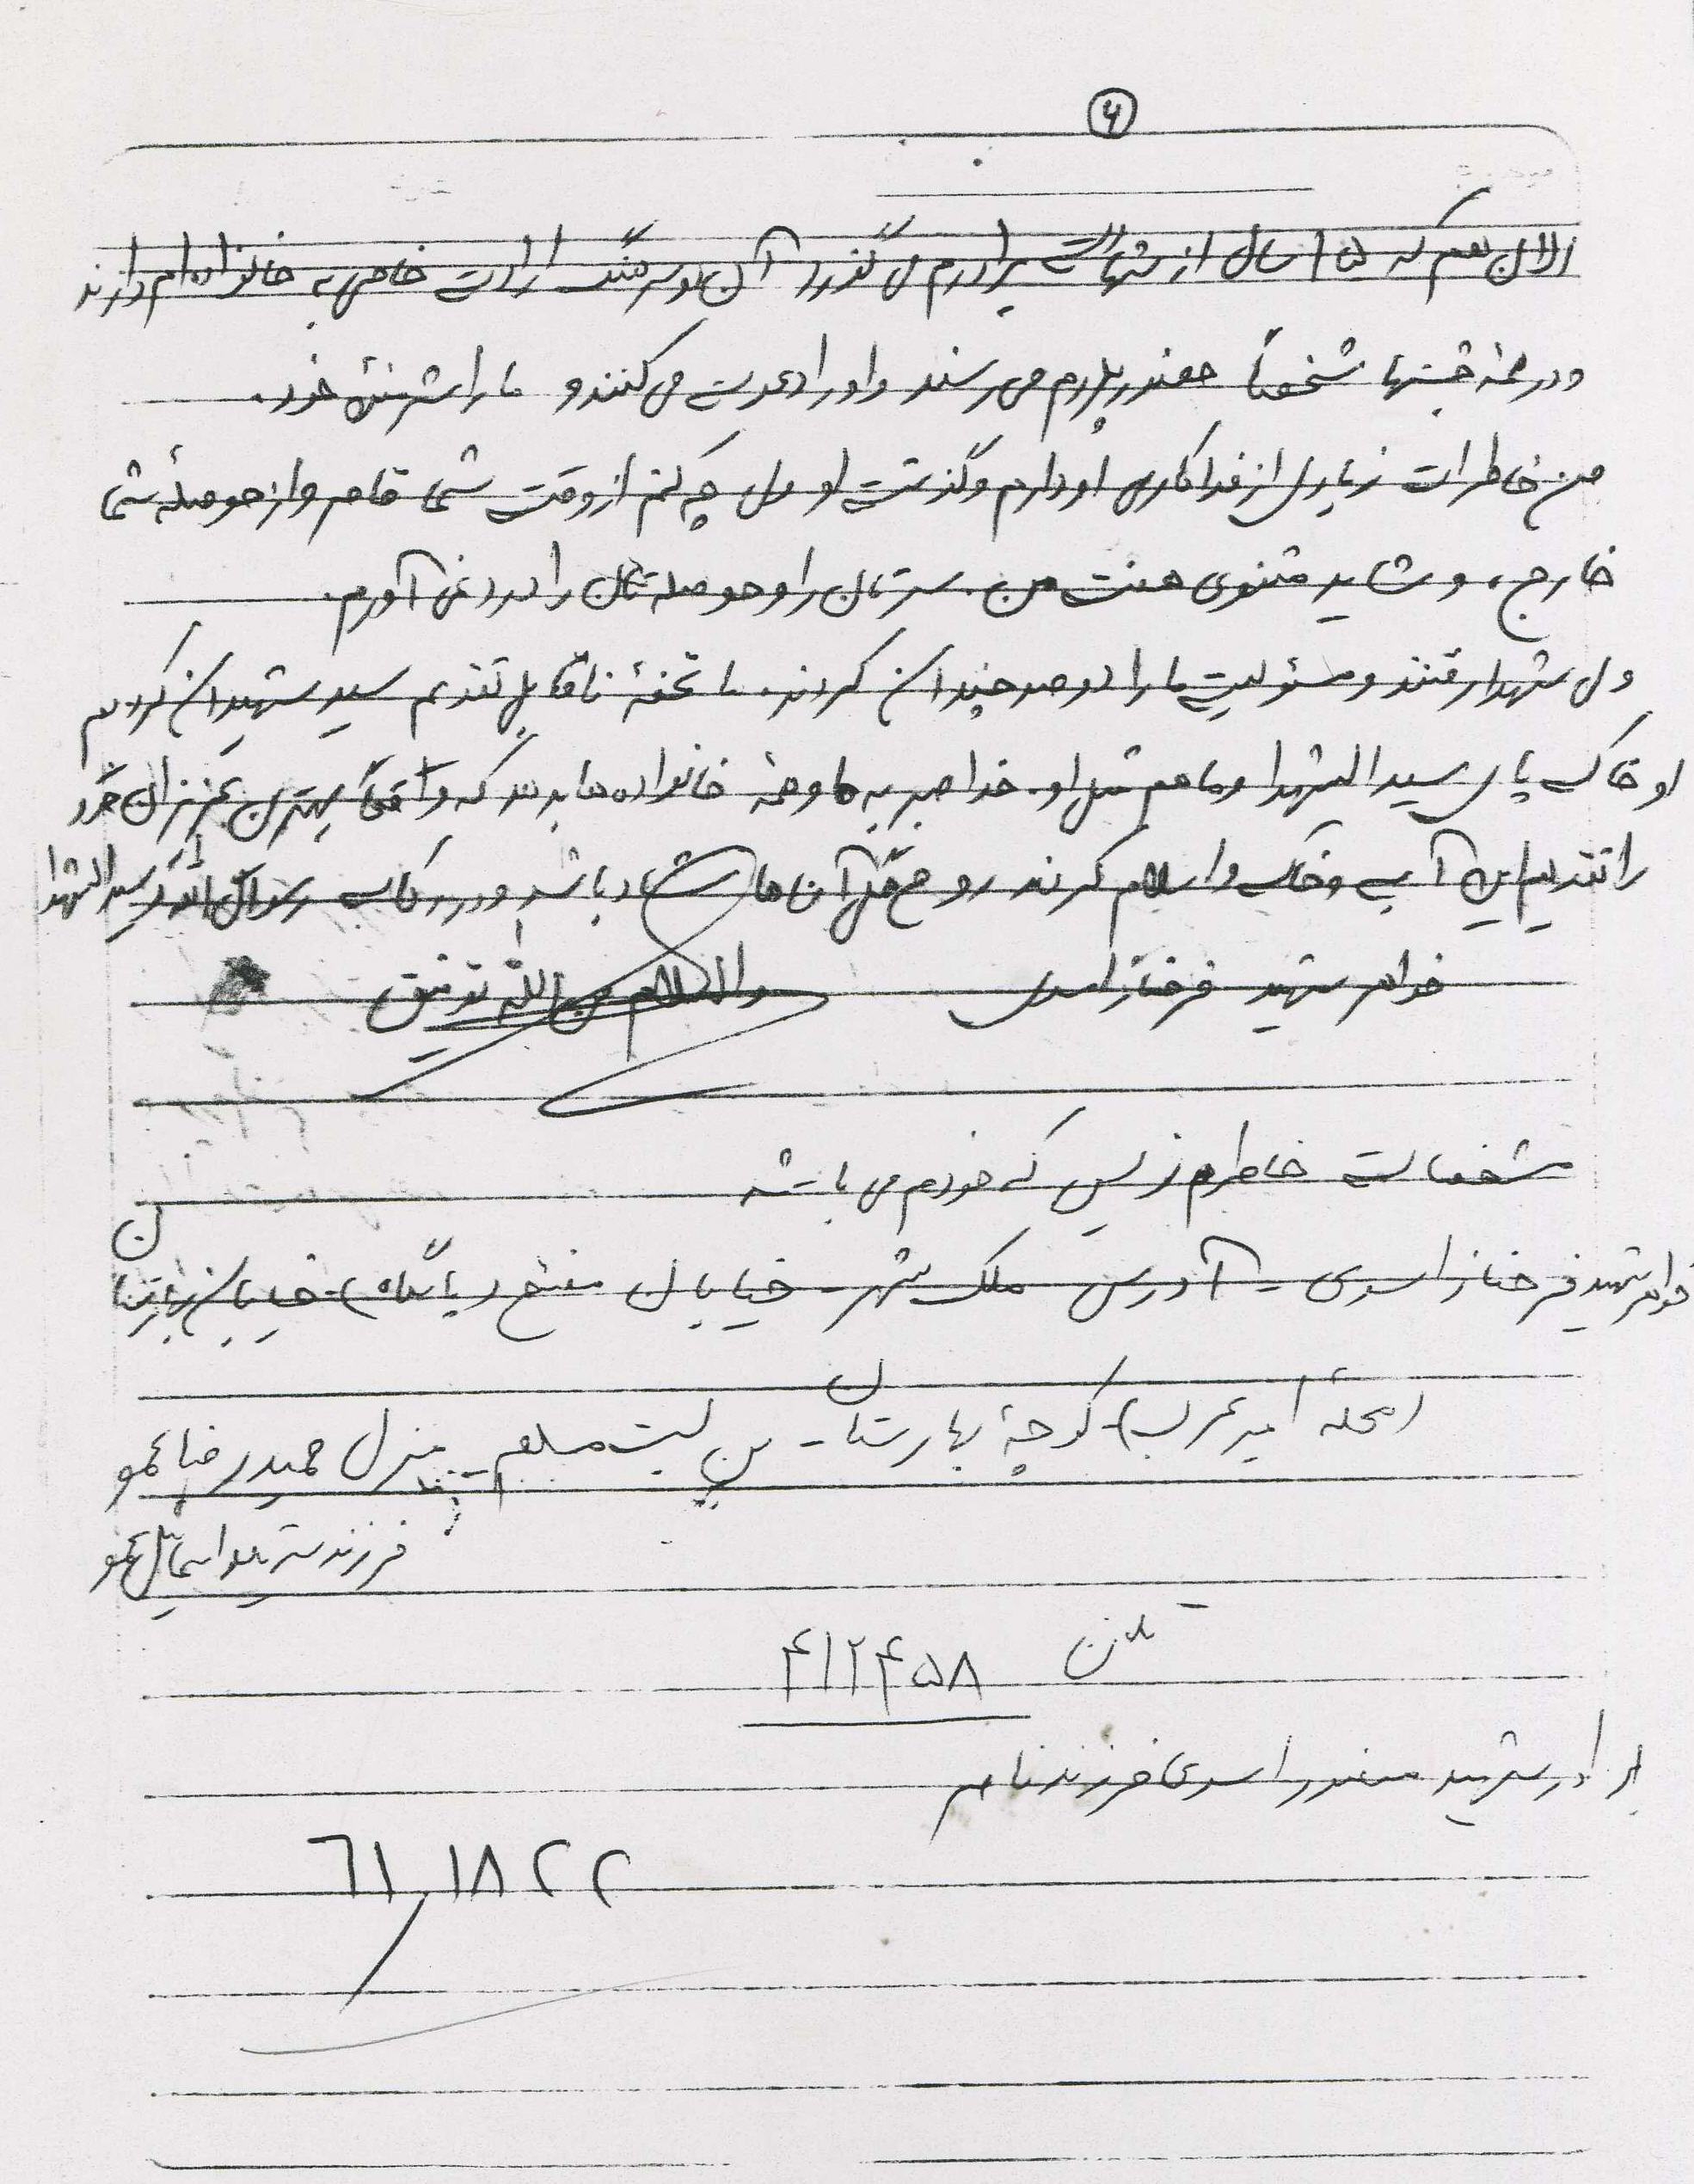 ۶
الان هم که ۱۵ سال از شهادت برادرم می گذرد آن دو سرهنگ ارادت خاصی به خانواده ام دارند
و در همهٔ جشنها شخصاً حضور پدرم می رسند و او را دعوت می کنند و ما را شرمندهٔ خود.
من خاطرات زیادی از فداکاری او دارم و گذشت او ولی چه کنم از وقت شما قاصر و از حوصلهٔ شما
خارج، و شاید مثنوی هفت من. سرتان را و حوصله تان را درد نمی آورم.
ولی شهدا رفتند و مسئولیت ما را دو صد چندان کردند. ما تحفهٔ ناقابل تقدیم سید شهیدان کردیم
او خاک پای سید الشهدا و ما هم مثل او. خدا صبر به ما و همهٔ خانواده ها بدهد که واقعاً بهترین عزیزان خود
را تقدیم این آب و خاک و اسلام کردند روح همگی آن ها شاد باشد و در رکاب رسول الله و سید الشهدا
خواهر شهید فرحناز اسدی والسلام من الله توفیق
مشخصات خاطره نویس که خودم می باشم
خواهر شهید فرحناز اسدی - آدرس ملک شهر - خیابان مفتح (پاسگاه) - خیابان بهارستان
(محلهٔ امیر عرب) - کوچهٔ بهارستان - بن بست مسلم - منزل حمیدرضا عمو
فرزند شهید اسماعیل عمو
تلفن ۴۱۲۴۵۸
برادر شهید منصور اسدی فرزند ناصر
۶۱,۱۸۲۲